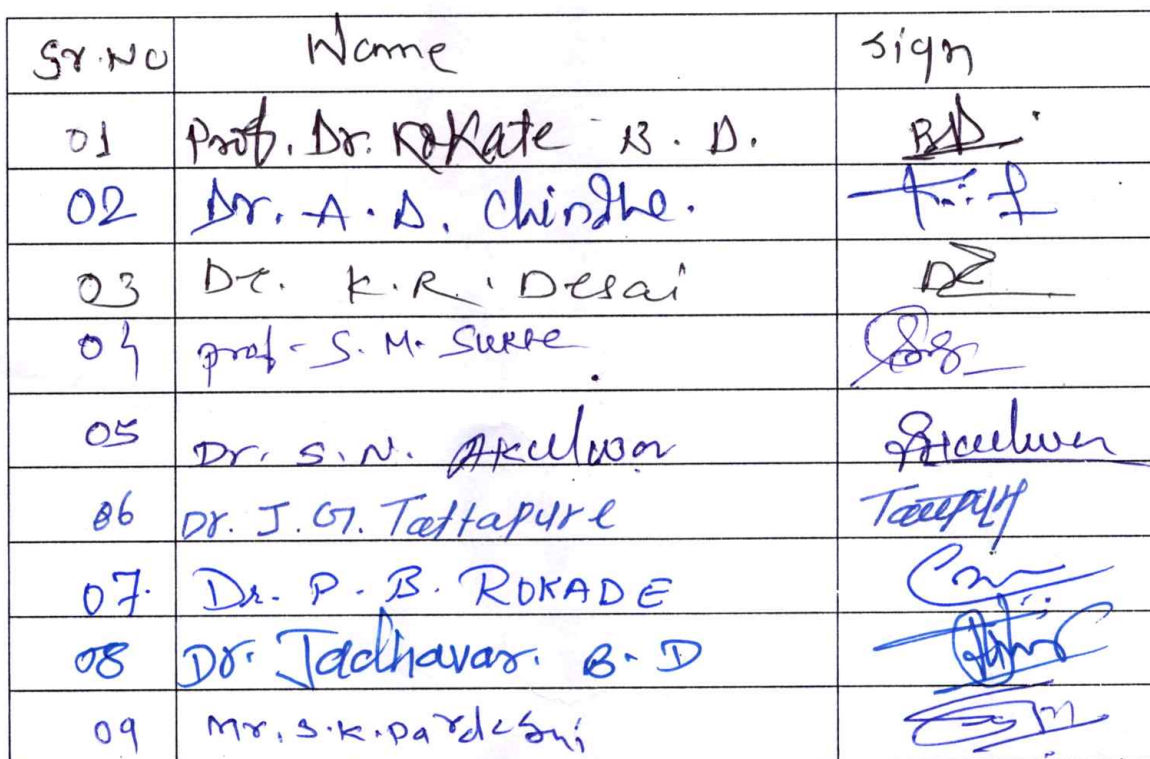 Sr.No Name Sign
01 Prof. Dr. Kokate B. D.
02 Dr. A. D. Chindhe.
03 Dr. K.R. Desai
04 prof. S. M. Surve
05 Dr. S. N. Akulwar
06 Dr. J. G. Tattapure
07. Dr. P. B. ROKADE
08 Dr. Jadhavar. B. D
09 Mr. S.K. Pardeshi